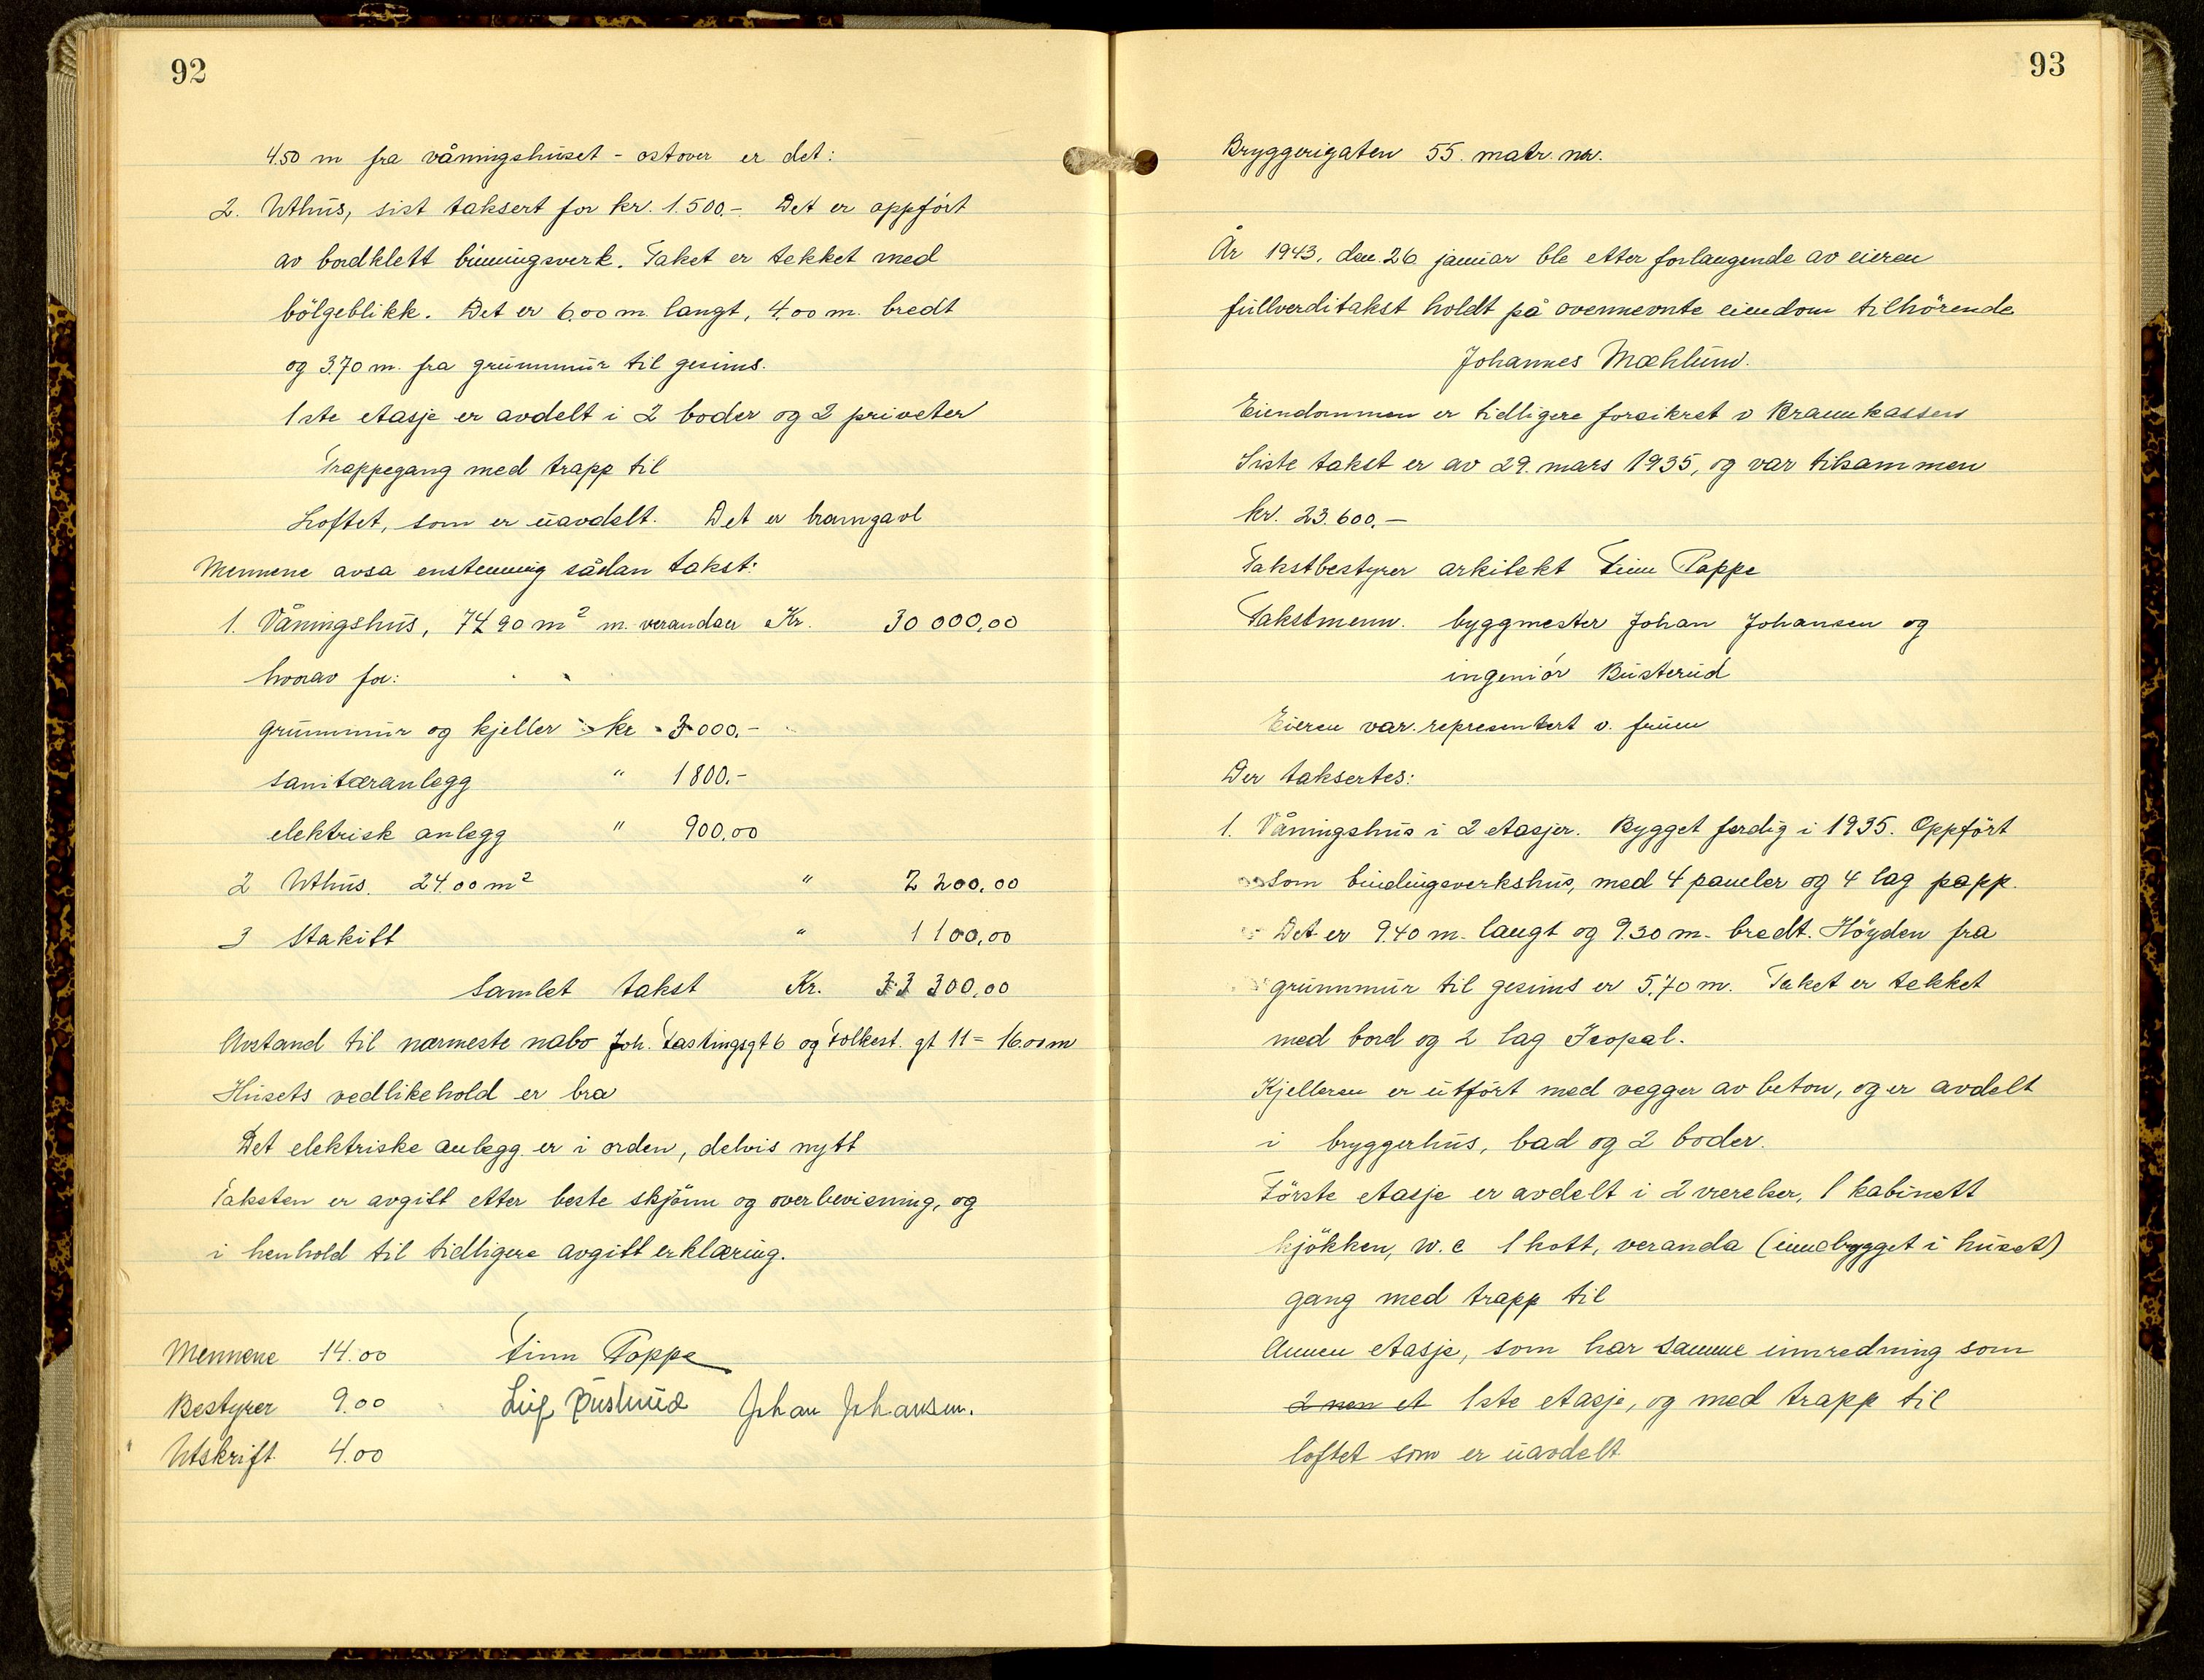 92
4.50 m fra våningshuset - ostover er det:
2. Uthus, sist taksert for kr. 1.500.- Det er oppfört
av bordklett binningsverk. Taket er tekket med
bölgeblikk. Det er 6.00 m. langt, 4.00 m. bredt
og 3.70 m. fra grunnmur til gesims.
1ste etasje er avdelt i 2 boder og 2 priveter
Trappegang med trapp til
Loftet, som er uavdelt. Det er branngavl
Mennene avsa enstemmig sådan takst:
1. Våningshus, 74.90 m² m. verandaer Kr. 30 000,00
hvorav for:
grunnmur og kjeller kr 3 000.-
sanitæranlegg " 1 800.-
elektrisk anlegg " 900,00
2 Uthus. 24.00 m² " 2 200,00
3 Stakitt " 1 100,00
Samlet takst Kr. 33 300,00
Avstand til nærmeste nabo Joh. Fastingsgt 6 og Folkest. gt 11 = 16.00 m
Husets vedlikehold er bra
Det elektriske anlegg er i orden, delvis nytt
Taksten er avgitt etter beste skjönn og overbevisning, og
i henhold til tidligere avgitt erklæring.
Mennene 14.00 Finn Poppe
Bestyrer 9.00 Leif Busterud Johan Johansen.
Utskrift 4.00
93
Bryggerigaten 55. matr. nr.
År 1943, den 26 januar ble etter forlangende av eieren
fullverditakst holdt på ovennevnte eiendom tilhörende
Johannes Mæhlum.
Eiendommen er tidligere forsikret v Brannkassen
Siste takst er av 29. mars 1935, og var tilsammen
kr. 23.600.-
Takstbestyrer arkitekt Finn Poppe
Takstmenn. byggmester Johan Johansen og
ingeniör Busterud
Eieren var representert v. fruen
Der taksertes:
1. Våningshus i 2 etasjer. Bygget ferdig i 1935. Oppfört
som bindingsverkshus, med 4 paneler og 4 lag papp.
Det er 9.40 m. langt og 9.30 m. bredt. Höyden fra
grunnmur til gesims er 5.70 m. Taket er tekket
med bord og 2 lag Icopal.
Kjelleren er utfört med vegger av beton, og er avdelt
i bryggerhus, bad og 2 boder.
Förste etasje er avdelt i 2 værelser, 1 kabinett
kjökken, w.c 1 kott, veranda (innebygget i huset)
gang med trapp til
Annen etasje, som har samme innredning som
2 nen et 1ste etasje, og med trapp til
loftet som er uavdelt